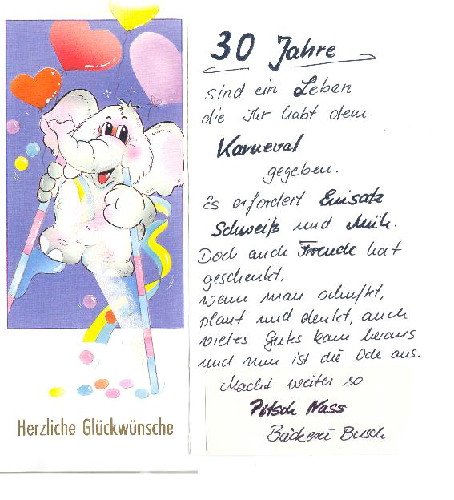 30 Jahre
sind ein Leben
die Ihr habt dem
Karneval
gegeben.
Es erfordert Einsatz
Schweiß und Müh.
Doch auch Freude hat
geschenkt,
wenn man schuftet,
plant und denkt, auch
vieles Gutes kam heraus
und nun ist die Ode aus.
Macht weiter so
Pitsch Nass
Bäckerei Busch
Herzliche Glückwünsche